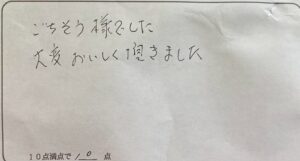 ごちそう様でした
大変おいしく頂きました
10点満点で10点